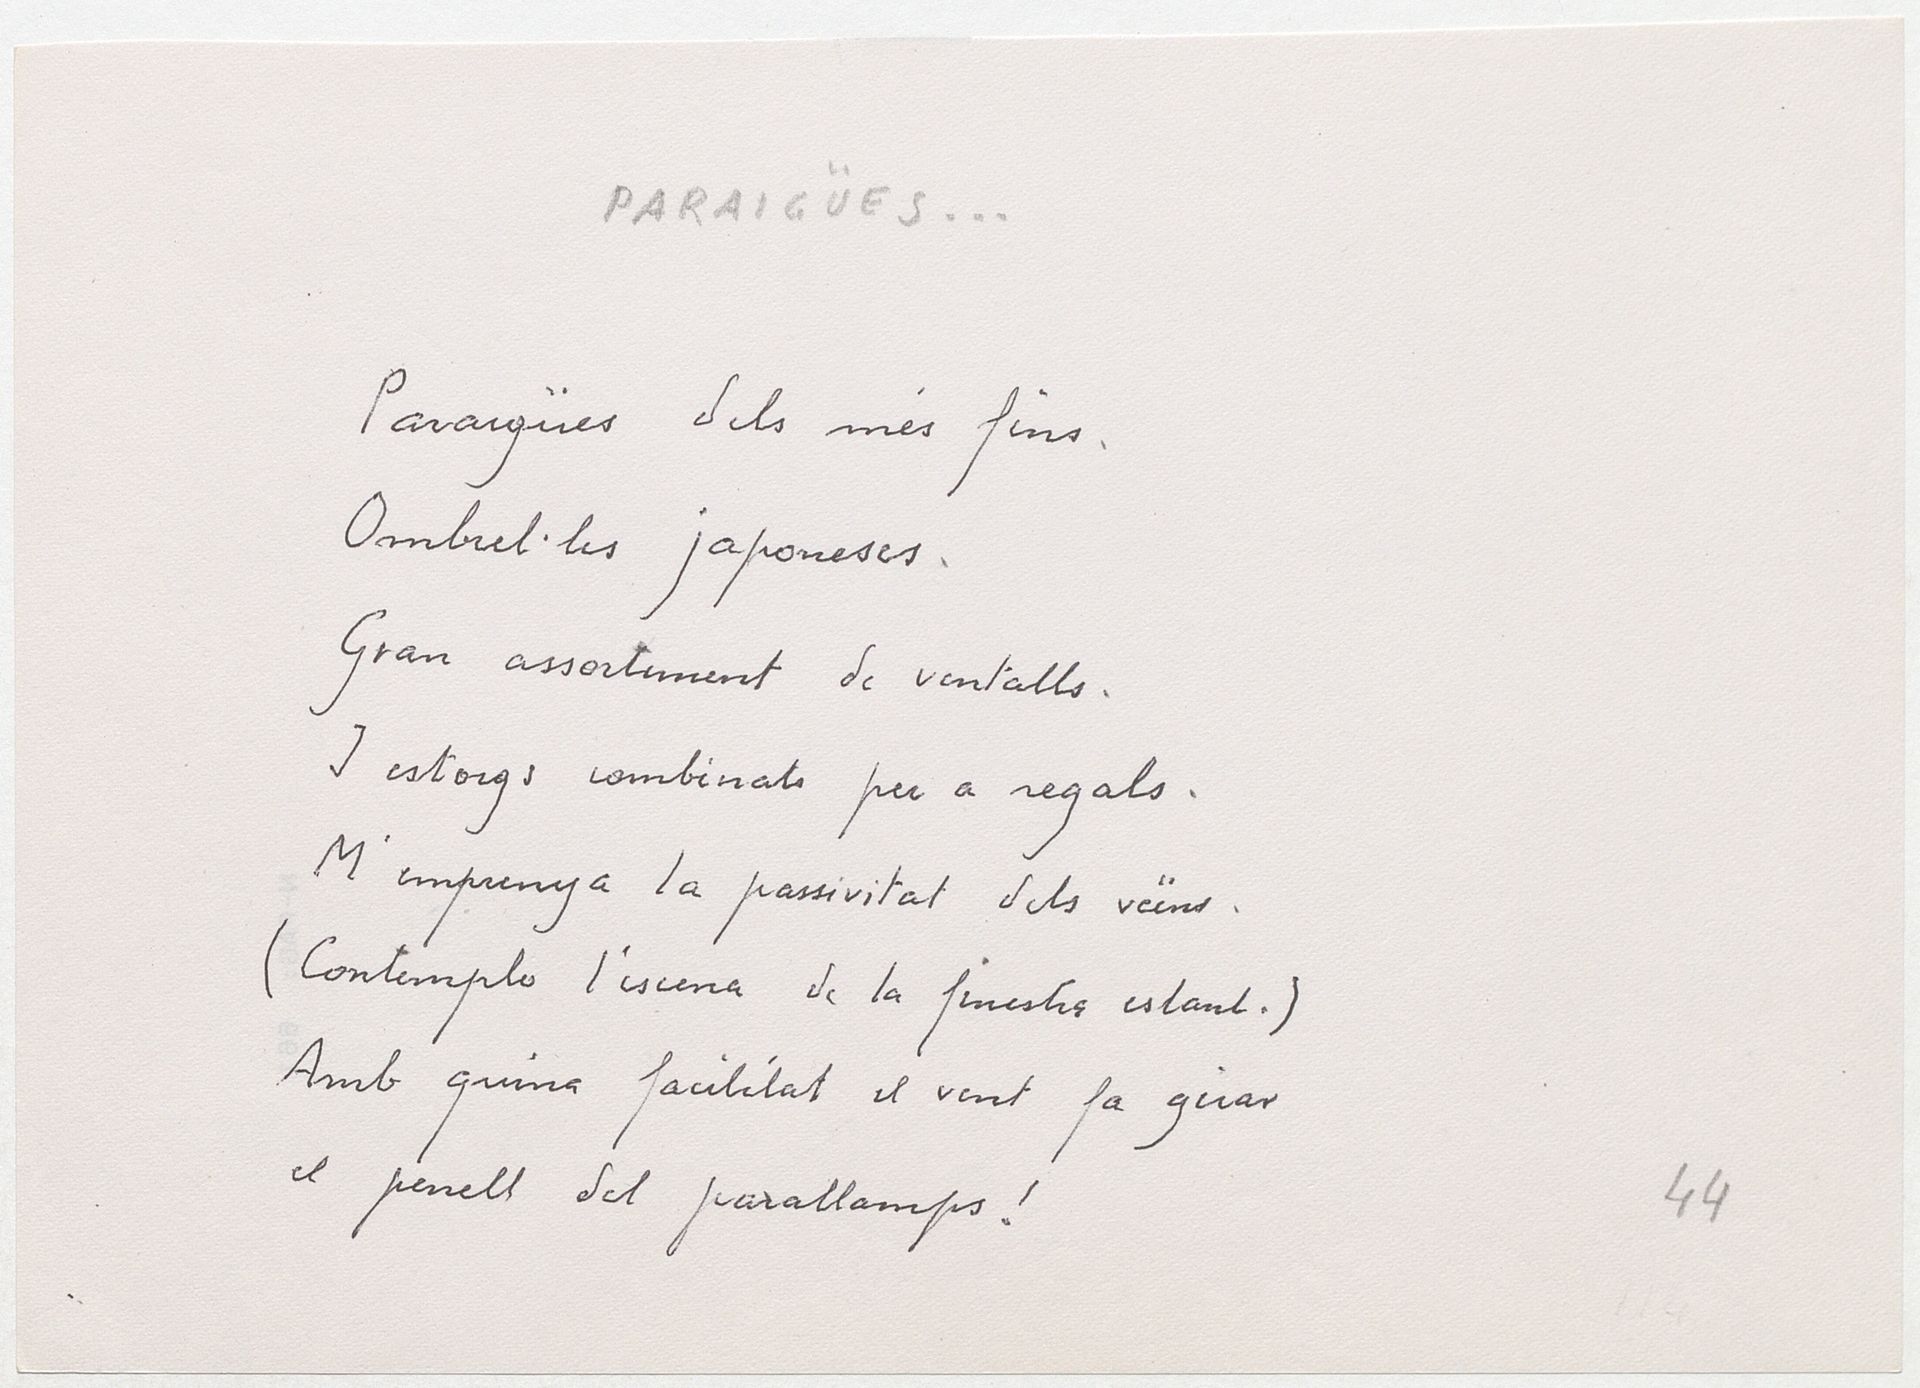 PARAIGÜES...
Paraigües dels més fins.
Ombrel·les japoneses.
Gran assortiment de ventalls.
I estoigs combinats per a regals.
M'emprenya la passivitat dels veïns.
(Contemplo l'escena de la finestra estant.)
Amb quina facilitat el vent fa girar
el penell del parallamps!
44